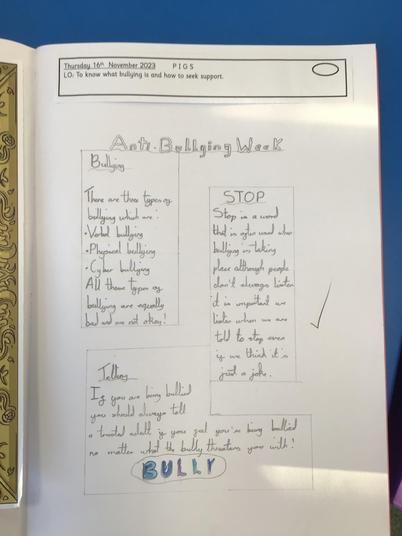 Thursday 16th November 2023 PIGS
LO: To know what bullying is and how to seek support.
Anti-Bullying Week
Bullying
There are three types of
bullying which are:
•Verbal bullying
•Physical bullying
•Cyber bullying
All these types of
bullying are equally
bad and are not okay!
STOP
Stop is a word
that is often used when
bullying is taking
place although people
don't always listen
it is important we
listen when we are
told to stop even
if we think it's
just a joke.
Telling
If you are being bullied
you should always tell
a trusted adult if you feel you're being bullied
no matter what the bully threatens you with!
BULLY